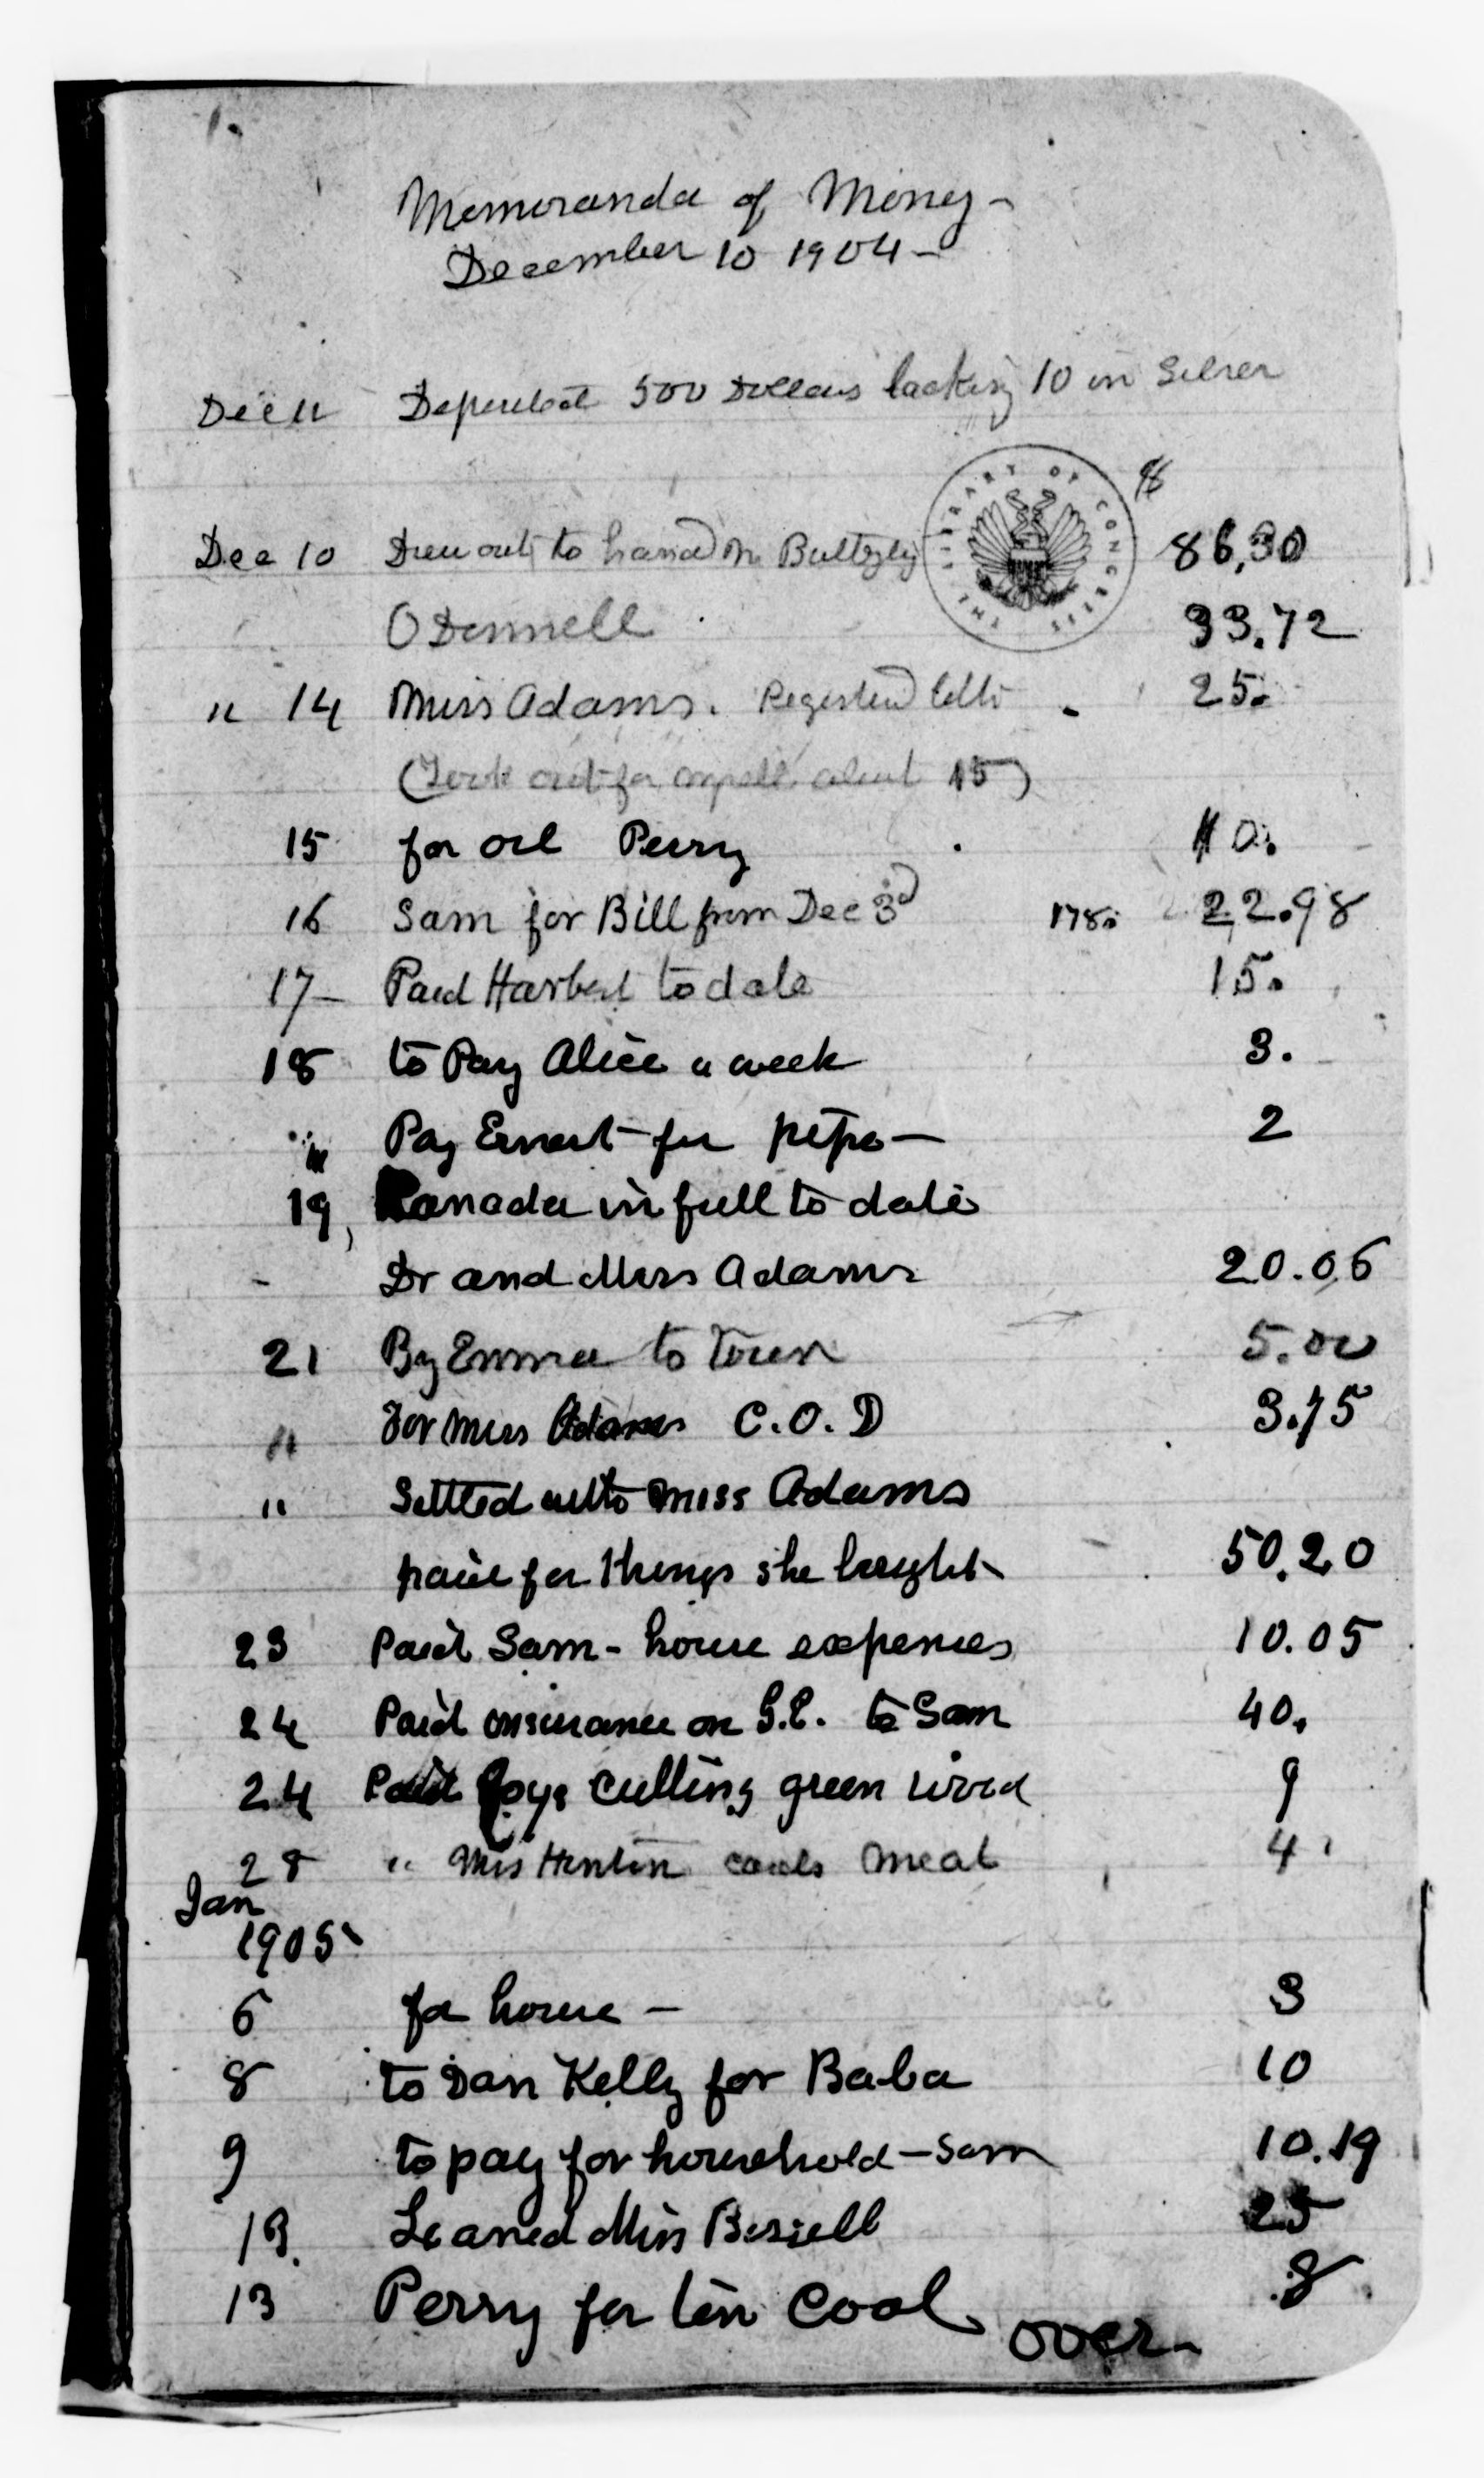 1.
Memoranda of Money -
December 10 1904 -
Dec 11 Deposited 500 Dollars lacking 10 in Silver
THE LIBRARY OF CONGRESS
$
Dec 10 Drew out to hand Mr Baltzley 86,30
O Donnell 33.72
" 14 Miss Adams. Registered letter - 25.
(Took out for myself about 15)
15 for oil Perry 10.
16 Sam for Bill from Dec 3d 178. 22.98
17- Paid Harbert to date 15.
18 to Pay Alice a week 3.
" Pay Ernest for pipe - 2
19, Canada in full to date
- Dr and Mrs Adams 20.06
21 By Emma to Town 5.00
" For Miss Adams C.O.D 3.75
" Settled with Miss Adams
paid for things she bought 50.20
23 Paid Sam - house expenses 10.05
24 Paid insurance on G.E. to Sam 40.
24 Paid Boys cutting green wood 9
28 " Mrs Hinton meat 4
Jan
1905
6 for house - 3
8 to Dan Kelly for Baba 10
9 to pay for household - Sam 10.19
13. Loaned Miss 25
13 Perry for ton Coal 8
over -